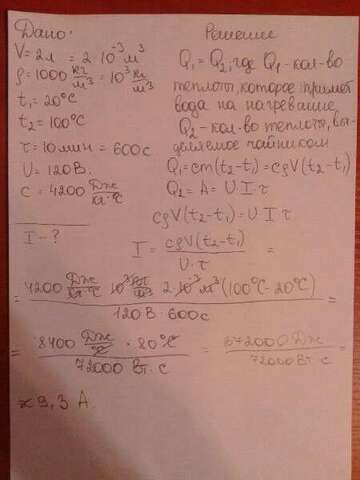 Дано:
V=2л = 2·10⁻³м³
ρ=1000 кг/м³ = 10³ кг/м³
t₁=20°C
t₂=100°C
τ=10мин = 600с
U=120В.
c=4200 Дж/кг·°C
I-?
Решение
Q₁=Q₂, где Q₁-кол-во
теплоты, которое примет
вода на нагревание
Q₂-кол-во теплоты, вы-
деляемое чайником
Q₁=cm(t₂-t₁)=cρV(t₂-t₁)
Q₂=A=UIτ
cρV(t₂-t₁)=UIτ
I = cρV(t₂-t₁)/U·τ =
= 4200 Дж/кг·°C 10³ кг/м³ 2·10⁻³м³(100°C-20°C)/120В·600с =
= 8400 Дж/°C · 80°C/72000 Вт·с = 672000 Дж/72000 Вт·с =
≈ 9,3 А.